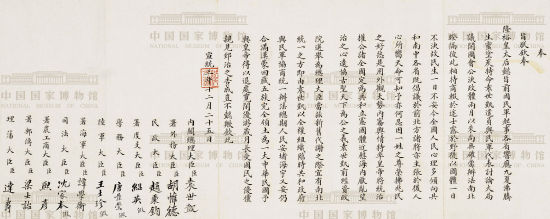 奉
旨朕欽奉
隆裕皇太后懿旨前因民軍起事各省響應九夏沸騰
生靈塗炭特命袁世凱遣員與民軍代表討論大局
議開國會公決政體兩月以來尚無確當辦法南北
暌隔彼此相持商輟於途士露於野徒以國體一日
不決故民生一日不安今全國人民心理多傾向共
和南中各省既倡議於前北方諸將亦主張於後人
心所嚮天命可知予亦何忍因一姓之尊榮拂兆民
之好惡是用外觀大勢內審輿情特率皇帝將統治
權公諸全國定為共和立憲國體近慰海內厭亂望
治之心遠協古聖天下為公之義袁世凱前經資政
院選舉為總理大臣當茲新舊代謝之際宜有南北
統一之方即由袁世凱以全權組織臨時共和政府
與民軍協商統一辦法總期人民安堵海宇乂安仍
合滿漢蒙回藏五族完全領土為一大中華民國予
與皇帝得以退處寬閒優游歲月長受國民之優禮
親見郅治之告成豈不懿歟欽此
宣統三年十二月二十五日
內閣總理大臣臣袁世凱
署外務大臣臣胡惟德
民政大臣臣趙秉鈞
署度支大臣臣紹英
學務大臣臣唐景崇
陸軍大臣臣王士珍假
署海軍大臣臣譚學衡
司法大臣臣沈家本假
署農工商大臣臣熙彥
署郵傳大臣臣梁士詒
理藩大臣臣達壽
中国国家博物馆
NATIONAL MUSEUM OF CHINA